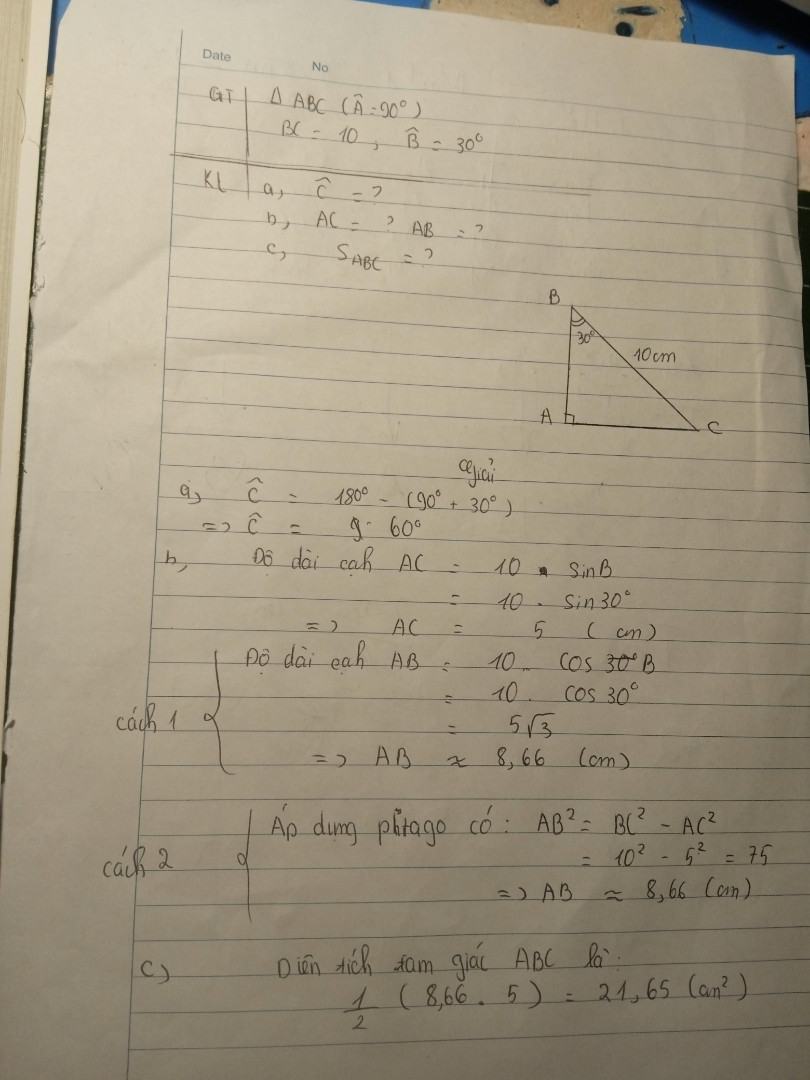 Date No
GT Δ ABC (Â = 90°)
BC = 10, B̂ = 30°
KL a, Ĉ = ?
b, AC = ? AB = ?
c, S_ABC = ?
B
30°
10cm
A C
Giải
a, Ĉ = 180° - (90° + 30°)
=> Ĉ = 60°
b, Độ dài cạh AC = 10 . sinB
= 10 . sin30°
=> AC = 5 (cm)
Độ dài cạh AB = 10 . cos B
= 10 . cos 30°
cách 1
= 5√3
=> AB ≈ 8,66 (cm)
Áp dụng pitago có: AB² = BC² - AC²
cách 2
= 10² - 5² = 75
=> AB ≈ 8,66 (cm)
c) Diện tích tam giác ABC là:
1/2 (8,66 . 5) = 21,65 (cm²)